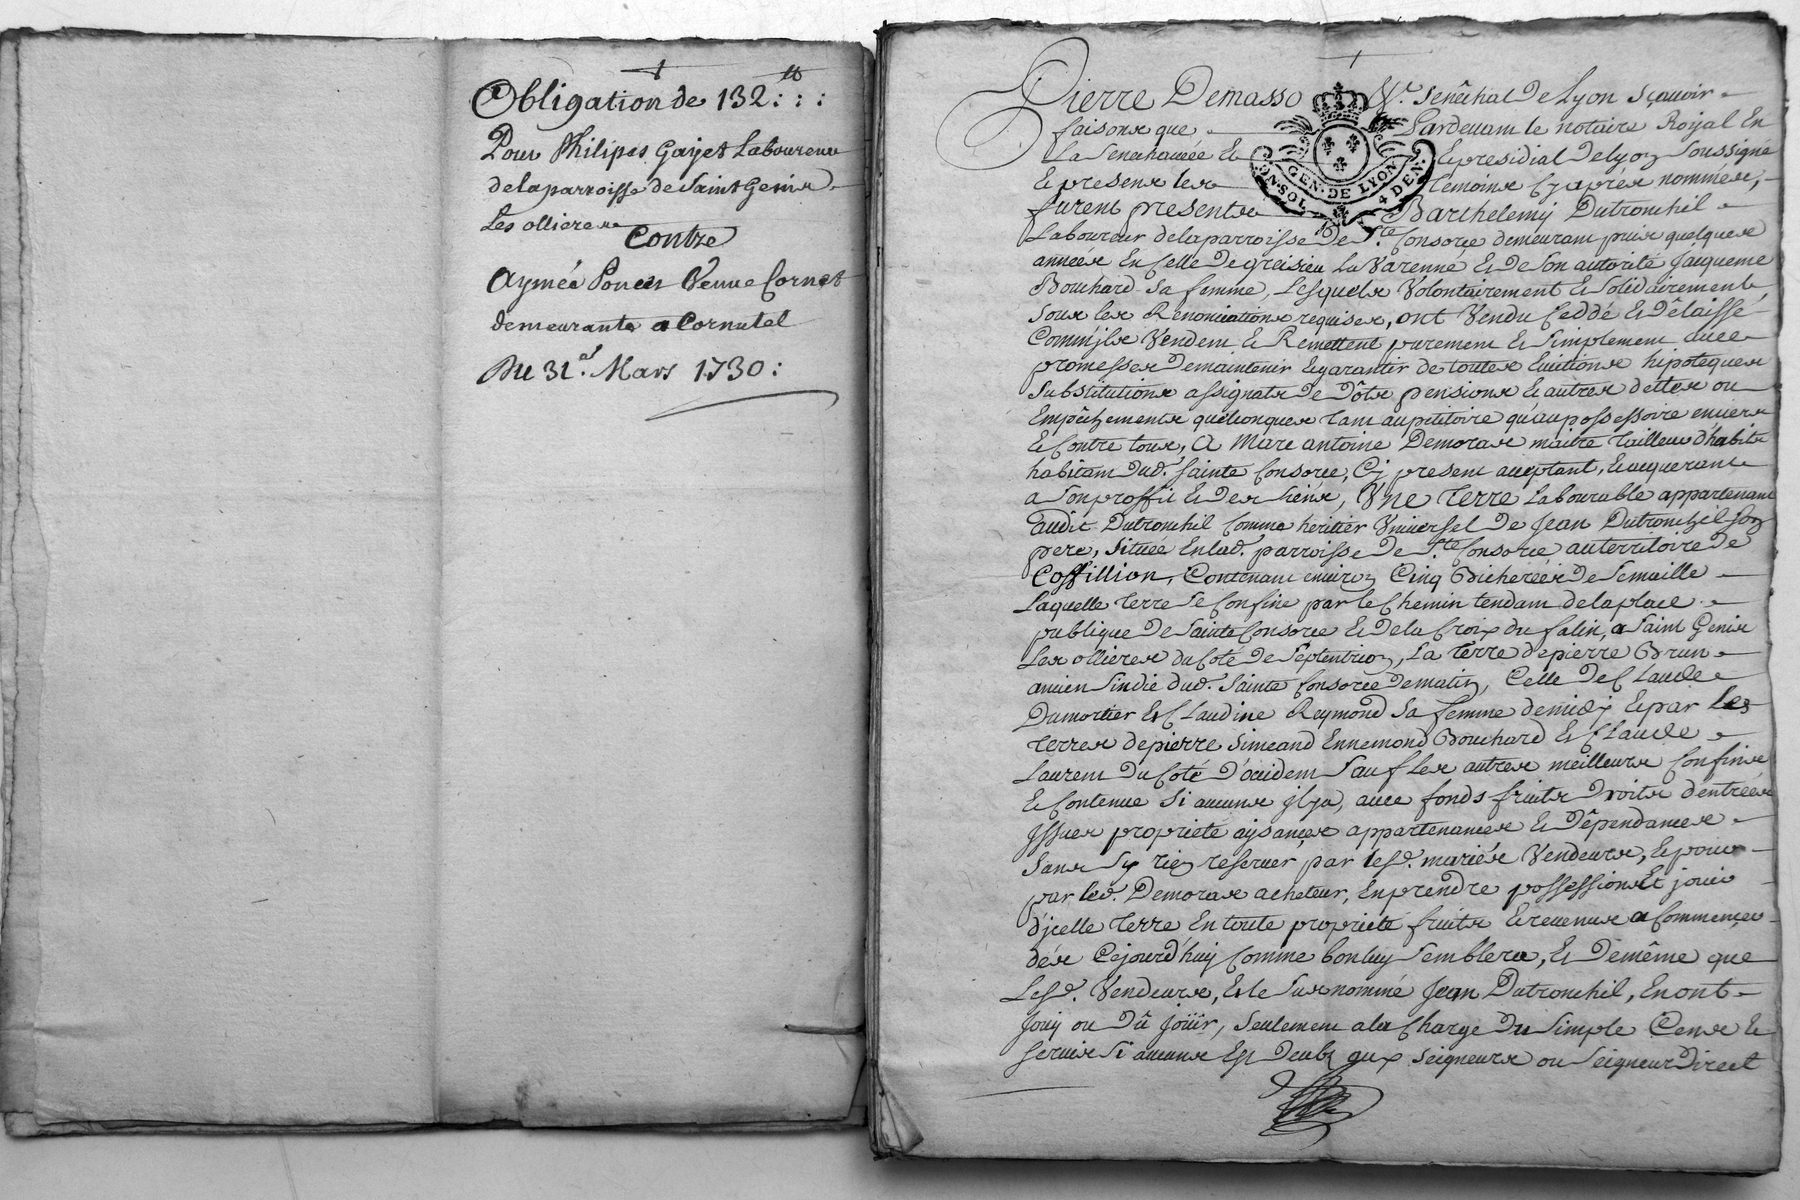 Obligation de 132 ₶ : : :
Pour Philipes Gayet Laboureur
de la parroisse de Saint Genis
Les ollieres
Contre
Aymée Poncet Veuve Cornet
demeurante a Cornutel
Du 31.e Mars 1730 :
Pierre Demasso Sr. Senêchal De Lyon sçavoir
faisons que Pardevant le notaire Royal En
La Senechaucée Et Et presidial De Lyon Soussigné
GEN. DE LYON
SOL 4 DEN.
Et present les temoins Cy aprés nommés,
furent presents Barthelemy Dutronchil
Laboureur de la parroisse De Ste. Consorce demeurant puis quelques
années En Celle De greisieu La Varenne Et De Son autorité Jaqueme
Bouchard Sa femme, Lesquels Volontairement Et Solidairement,
Sous les Renonciations requises, ont Vendu Ceddé Et Délaissé
Comm'ils Vendent Et Remettent purement Et Simplement avec
promesses De maintenir Et garantir de toutes Evictions hipoteques
Substitutions assignats De Dôts pensions Et autres dettes ou
Empêchements quelconques tant au petitoire qu'au possessoire envers
Et Contre tous, A Marc antoine Demoras maitre tailleur d'habits
habitant dud. Sainte Consorce, Cy present acceptant, Et acquerant
a Son proffit Et des Siens, Une terre Labourable appartenant
audit Dutronchil Comme heritier Universel de Jean Dutronchil Son
pere, Située En lad. parroisse De Ste. Consorce au territoire De
Coffillion, Contenant environ Cinq Bicherées De Semaille
Laquelle terre Se Confine par le Chemin tendant de la place
publique De Sainte Consorce Et De la Croix du falin, a Saint Genis
Les ollieres du Coté De Septentrion, La terre de pierre Brun
ancien Sindic dud. Sainte Consorce De matin, Celle De Claude
Dumortier Et Claudine Reymond Sa femme de midy Et par Les
terres de pierre Simeand Ennemond Bouchard Et Claude
Laurent Du Coté D'occident Sauf Les autres meilleurs Confins
Et Contenue Si aucuns jl ya, avec fonds fruits Droits d'entrées
Jssues proprieté aysances appartenances Et Dépendances
Sans S'y rien reserver par lesd. mariés Vendeurs, Et pour
par led. Demoras acheteur, En prendre possession Et jouir
d'jcelle terre En toute proprieté fruits Et revenus a Commencer
dés Cejourd'huy Comme bon luy Semblera, Et De même que
Lesd. Vendeurs, Et le Surnommé Jean Dutronchil, En ont
Jouy ou Dû Joüir, Seulement a la Charge Du Simple Cens Et
Servis Si aucuns Est Deubs aux Seigneurs ou Seigneur Direct